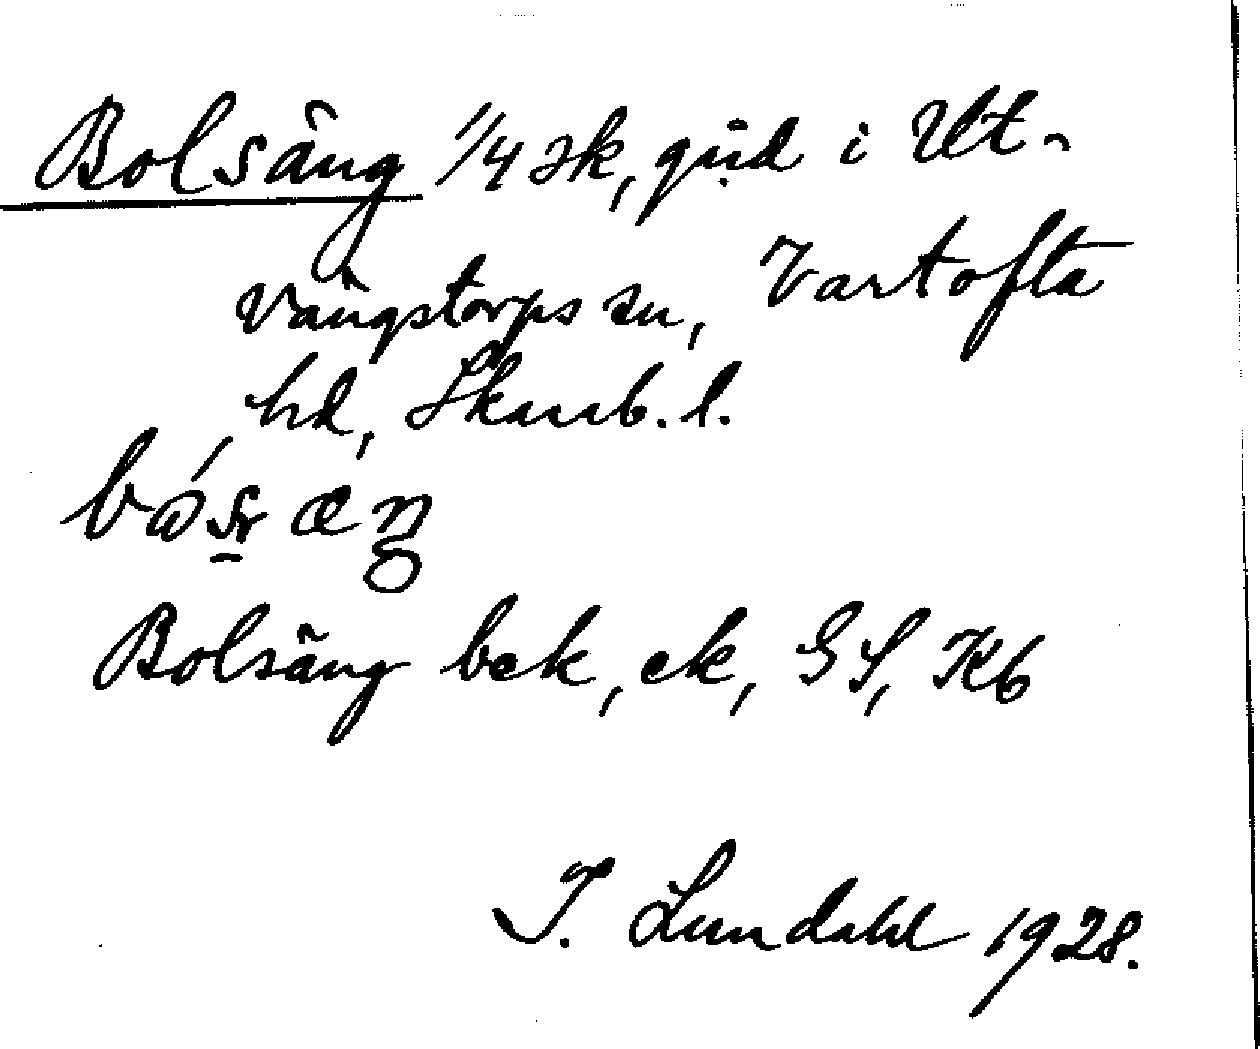 Bolsäng 1/4 sk, gd i Ut-
vängstorps sn, Vartofta
hd, Skarab. l.
Bolsäng bek, ek, GS, Kb
I. Lundahl 1928.